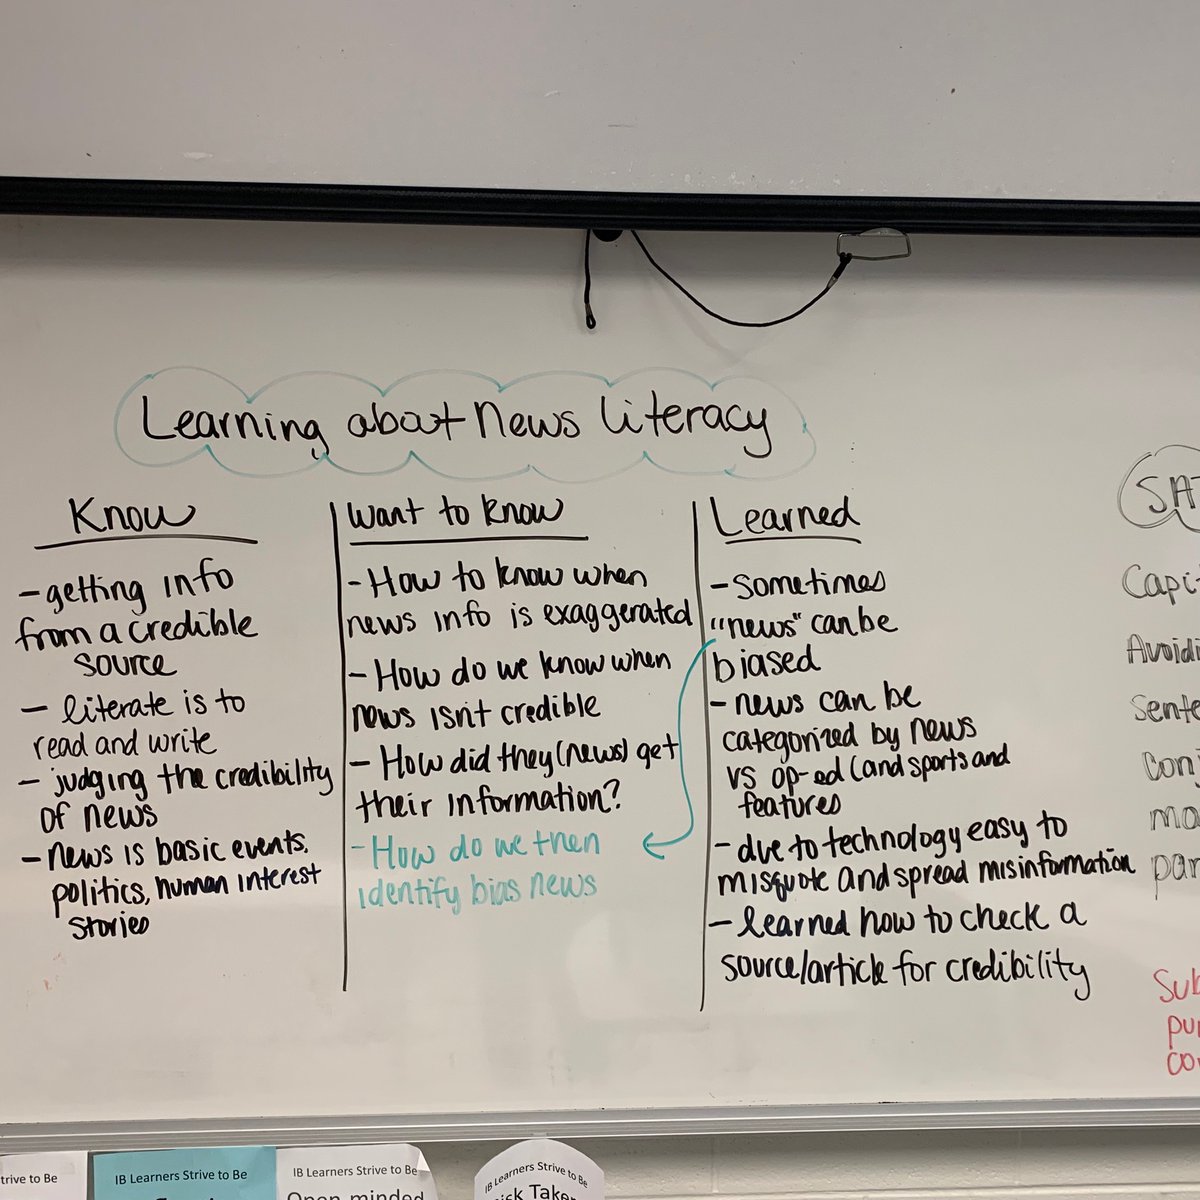 Learning about News Literacy
Know
- getting info
from a credible
source
- literate is to
read and write
- judging the credibility
of news
- news is basic events,
politics, human interest
stories
Want to know
- How to know when
news info is exaggerated
- How do we know when
news isn't credible
- How did they (news) get
their information?
- How do we then
identify bias news
Learned
- sometimes
"news" can be
biased
- news can be
categorized by news
vs op-ed (and sports and
features
- due to technology easy to
misquote and spread misinformation
- learned how to check a
source/article for credibility
SAT
Capi
Avoidi
Sente
Conj
mo
par
Sub
pu
co
trive to Be
IB Learners Strive to Be
IB Learners Strive to Be
Open minded
IB Learners Strive to Be
isk Take